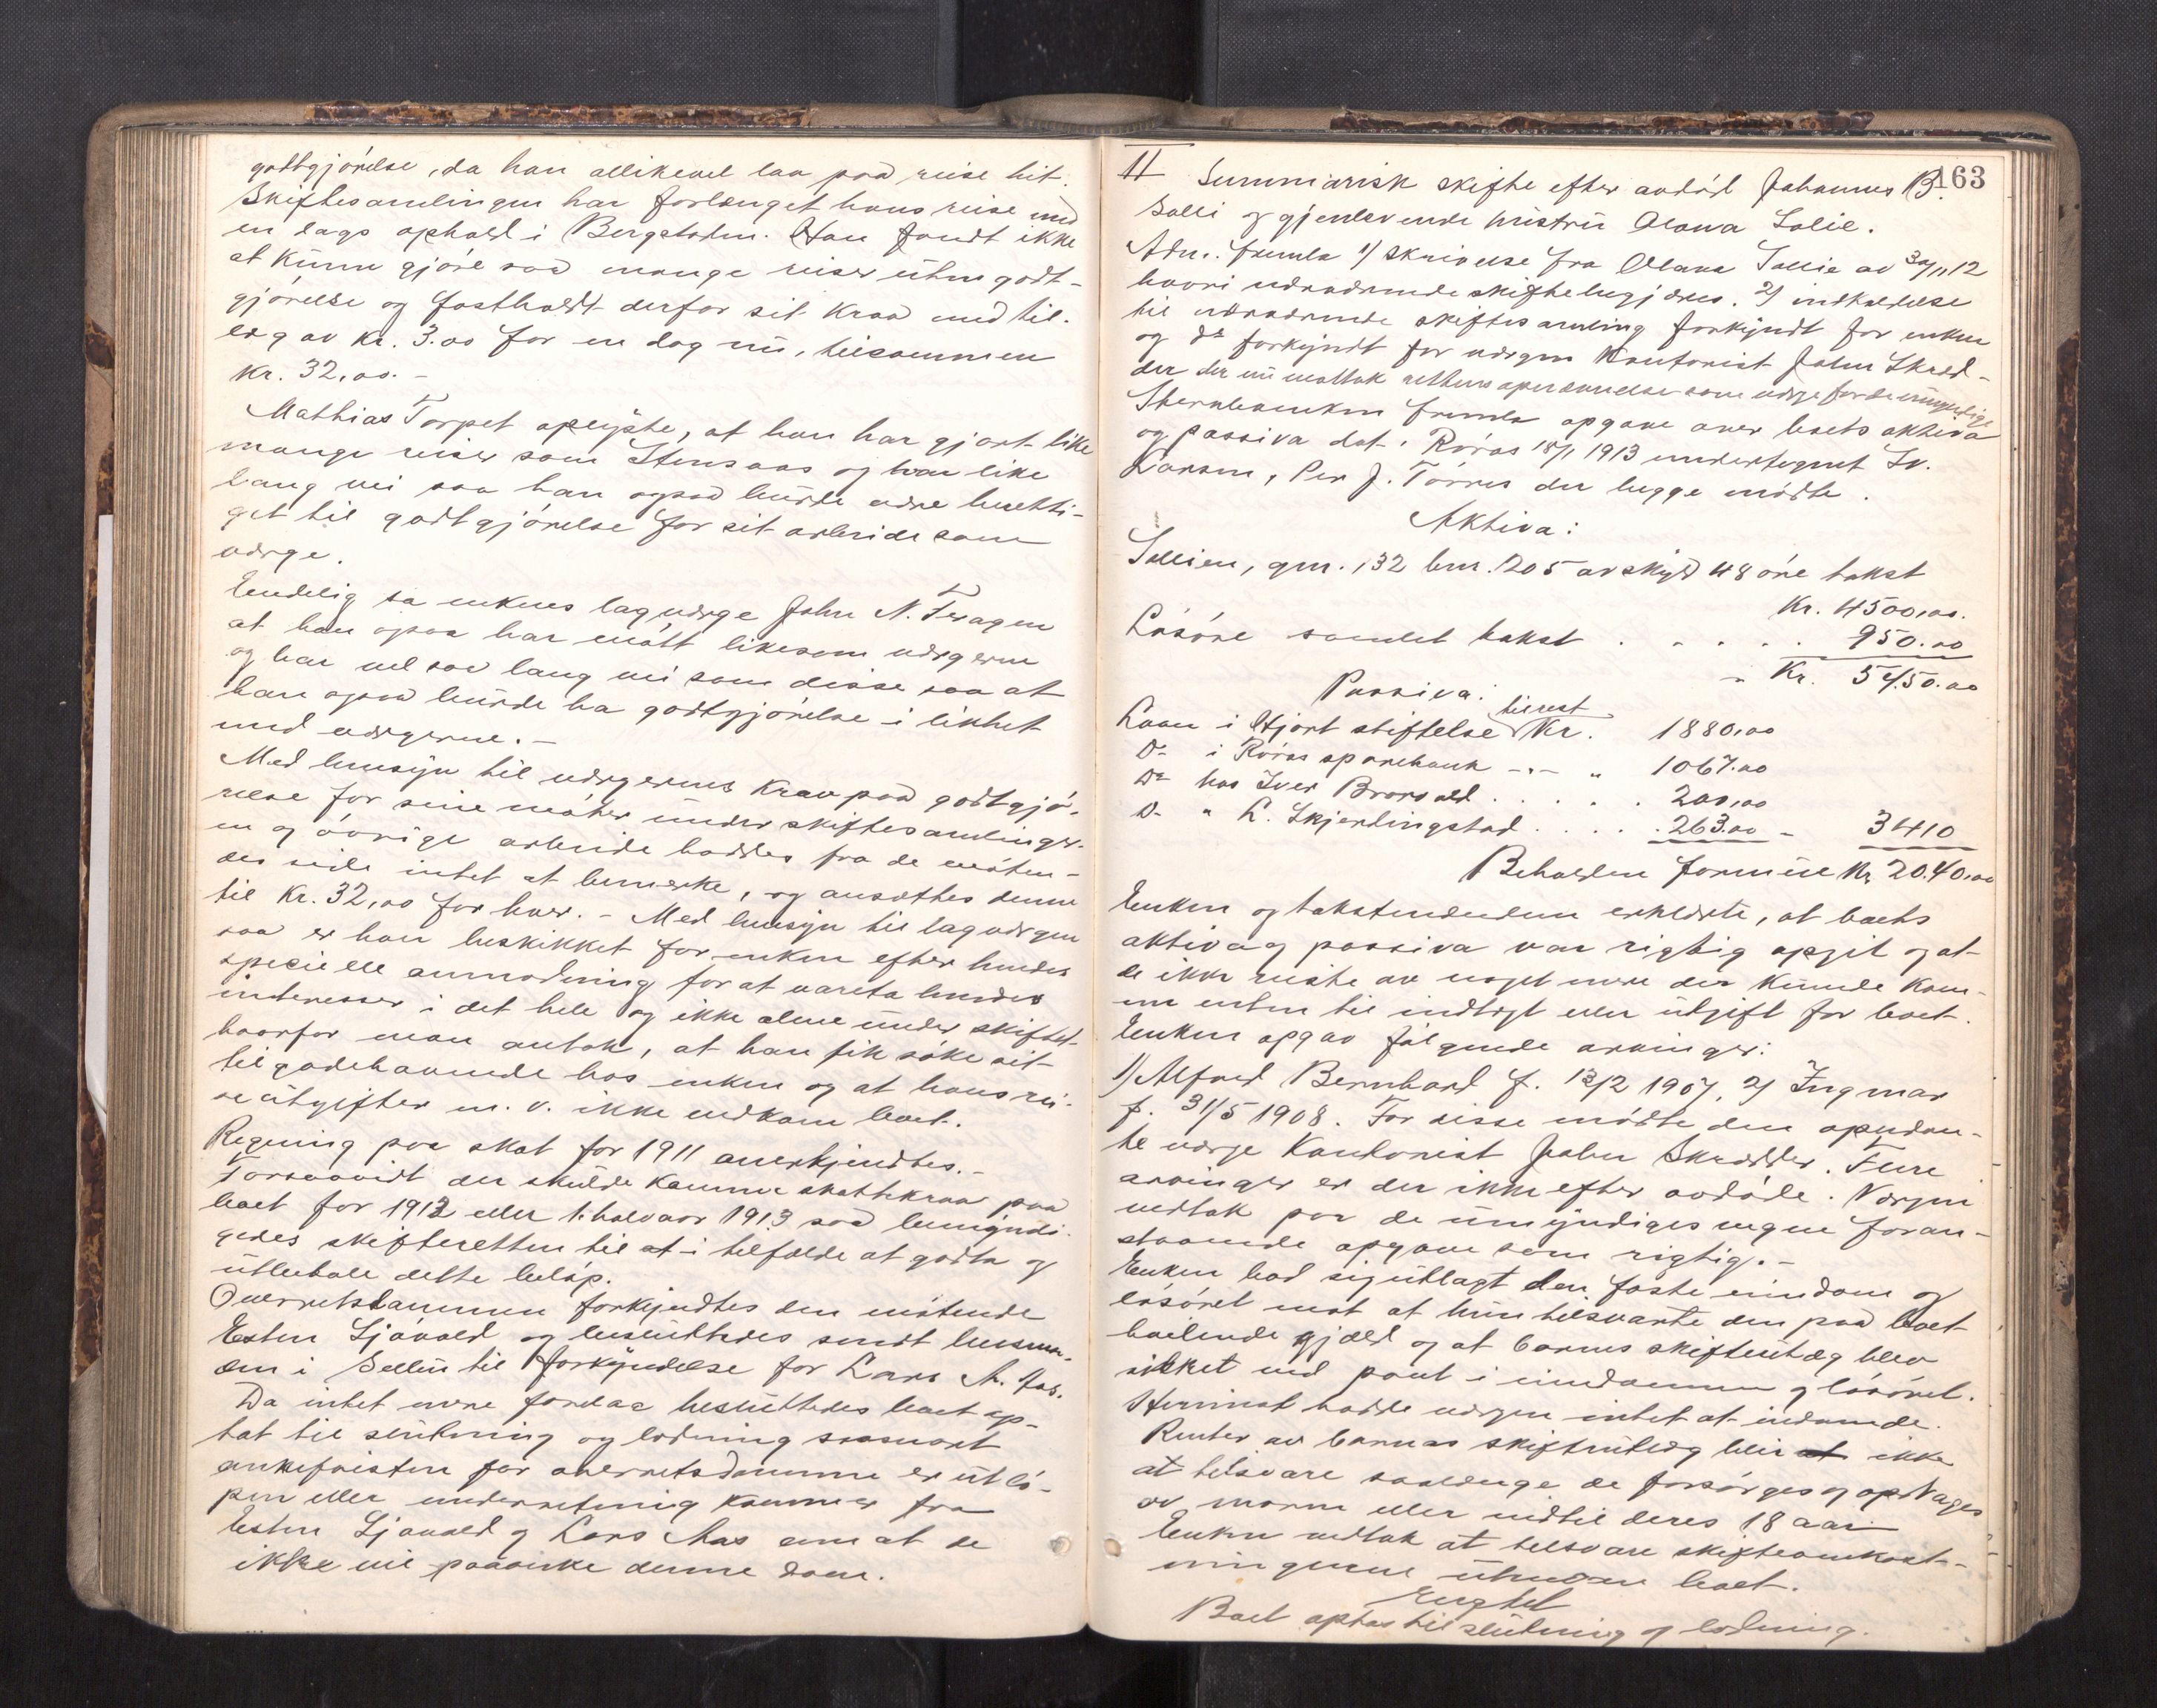 godtgjörelse, da han allikevel laa paa reise hit.
Skiftesamlingen har forlænget hans reise med
en dags ophold i Bergstaden. Han fandt ikke
at kunne gjöre saa mange reiser uten godt-
gjörelse og fastholdt derfor sit krav med til-
læg av kr. 3.00 for en dag nu, tilsammen
kr. 32,00.-
Mathias Torpet oplyste, at han har gjort like
mange reiser som Stensaas og har like
lang vei saa han ogsaa burde være beretti-
get til godtgjörelse for sit arbeide som
værge.
Endelig sa enkens lagværge John N. Feragen
at han ogsaa har mött likesom værgerne
og har vel saa lang vei som disse saa at
han ogsaa burde ha godtgjörelse i likhet
med værgerne.-
Med hensyn til værgernes krav paa godtgjö-
relse for sine möter under skiftesamlinger-
ne og övrige arbeide haddes fra de möten-
des side intet at bemerke, og ansattes denne
til kr. 32,00 for hver.- Med hensyn til lagværgen
saa er han beskikket for enken efter hendes
specielle anmodning for at vareta hendes
interesser i det hele og ikke alene under skiftet
hvorfor man antok, at han fik söke sit
tilgodehavende hos enken og at hans rei-
seutgifter m. v. ikke vedkom boet.
Regning paa skat for 1911 anerkjendtes.-
Forsaavidt der skulde komme skattekrav paa
boet for 1912 eller 1. halvaar 1913 saa bemyndi-
gedes skifteretten til at i tilfælde at godta og
utbetale dette belöp.
Overretsdommen forkyndtes den mötende
Esten Sjövold og besluttedes sendt lensman-
den i Selbu til forkyndelse for Lars A. Aas.
Da intet mere forelaa besluttedes boet op-
tat til slutning og lodning saasnart
ankefristen for overretsdommen er utlö-
pen eller underretning kommer fra
Esten Sjövold og Lars Aas om at de
ikke vil paaanke denne dom.
163
11 Summarisk skifte efter avdöd Johannes B.
Solli og gjenlevende hustru Olava Solie.
Adm. fremla 1) skrivelse fra Olava Sollie av 30/11 12
hvori nærværende skifte begjæres. 2) indkaldelse
til nærværende skiftesamling forkyndt for enken
og do forkyndt for værgen Kontorist John Skred-
der der nu mottok rettens opnævnelse som værge for de umyndige
fremla opgave over boets aktiva
og passiva dat. Röros 18/1 1913 undertegnet Iv.
Larsen, Per J. Törres der begge mödte.
Aktiva:
Sollien, gnr. 132 bnr. 205 av skyld 48 öre takst
Kr. 4500,00.
Lösöre samlet takst . . . . . 950.00
Kr. 5450.00
Passiva:
Laan i Hjort stiftelse tilrest Kr. 1880,00
Do i Röros sparebank -.- " 1067.00
Do hos Iver Brovold . . . . . 200,00
D. " L. Skjerdingstad . . . . . 263.00 - 3410
Beholden formue Kr 2040,00
Enken og takstmændene erklærte, at boets
aktiva og passiva var rigtig opgit og at
de ikke visste av noget mere der kunde kom-
me enten til indtægt eller utgift for boet.
Enken opgav fölgende arvinger:
1) Alfred Bernhard f. 13/2 1907, 2) Ingmar
f. 31/5 1908. For disse mödte den opnævn-
te værge Kontorist John Skrædder. Flere
arvinger er der ikke efter avdöde. Værgen
vedtok paa de umyndiges vegne foran-
staaende opgave som rigtig.-
Enken bad sig utlagt den faste eiendom og
lösöret mot at hun tilsvarte den paa boet
hvilende gjæld og at barnes skifteutlæg blev
sikket ved pant i eiendommen og lösöret.
Herimot hadde værgen intet at indvende.
Renter av barnas skifteutlæg blir at ikke
at tilsvare saalænge de forsörges og opdrages
av moren eller indtil deres 18 aar
Enken vedtok at tilsvare skifteomkost-
ningerne utenom boet.
Boet optas til slutning og lodning.